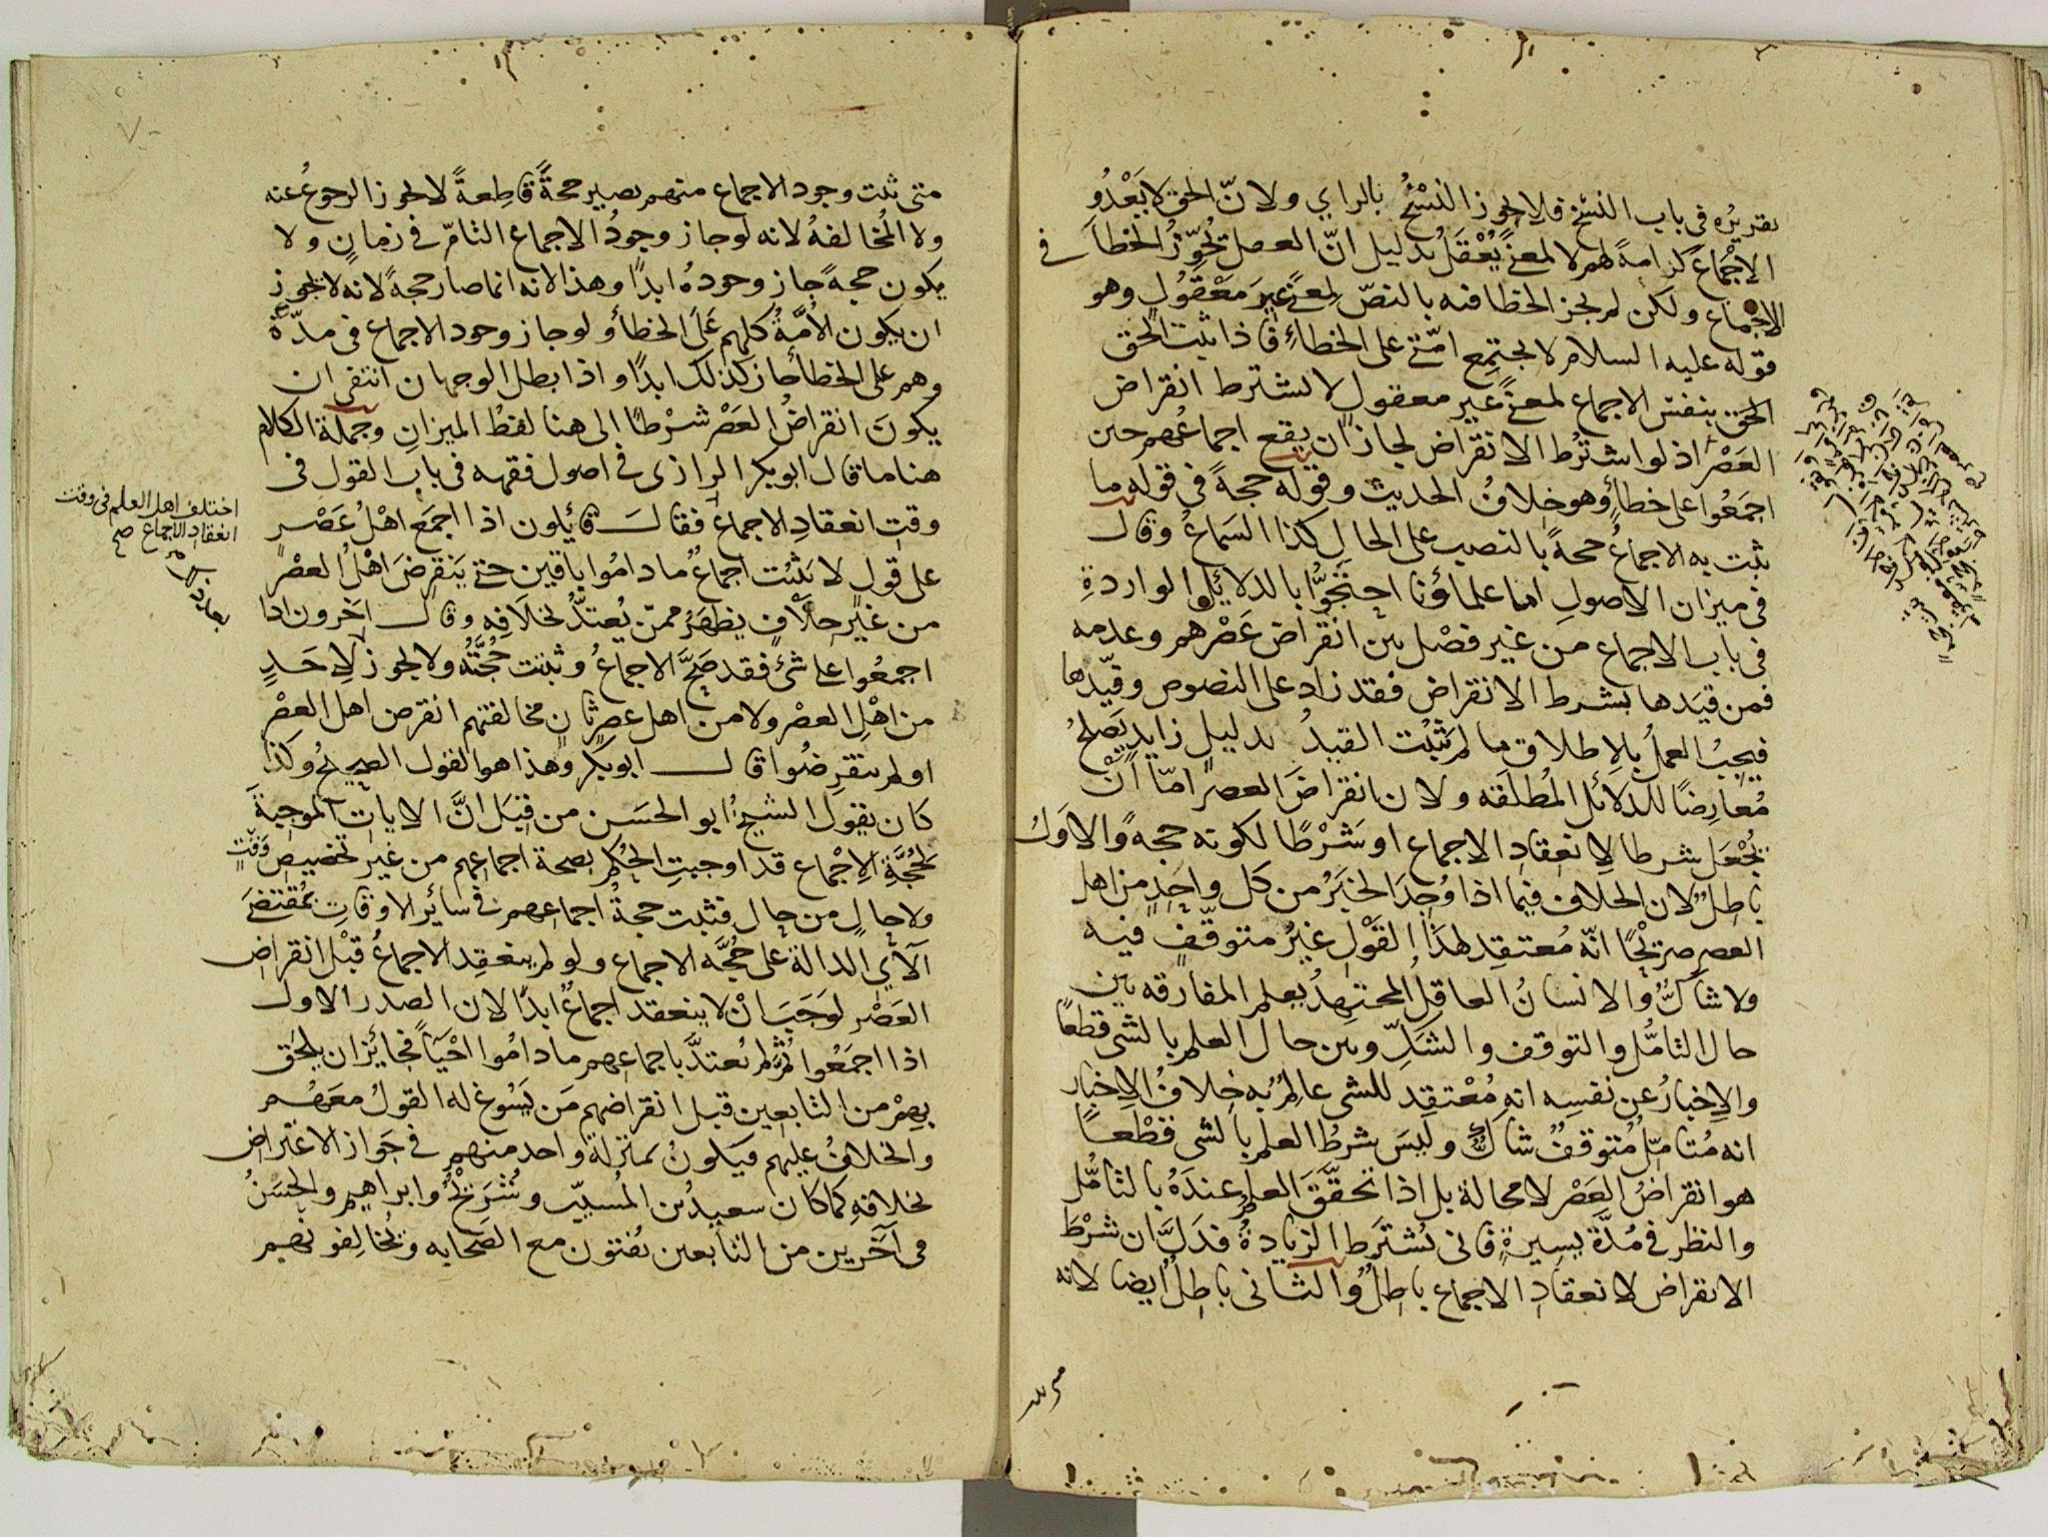 تقريره في باب النسخ فلا يجوز النسخ بالراي ولان الحق لا يعدو
الاجماع كرامة لهم لا لمعنى يعقل بدليل ان العقل يجوز الخطأ في
الاجماع ولكن لم يجز الخطا فيه بالنص لمعنى غير معقول وهو
قوله عليه السلام لا يجتمع امتي على الخطاء فاذا ثبت الحق
الحق بنفس الاجماع لمعنى غير معقول لا يشترط انقراض
العصر اذ لو اشترط الانقراض لجاز ان يقع اجماعهم حين
اجمعوا على خطأ وهو خلاف الحديث وقوله حجة في قوله ما
يثبت به الاجماع حجة بالنصب على الحال كذا السماع وقال
في ميزان الاصول اما علماؤنا احتجوا بالدلائل الواردة
في باب الاجماع من غير فصل بين انقراض عصرهم وعدمه
فمن قيدها بشرط الانقراض فقد زاد على النصوص وقيدها
فيجب العمل بالاطلاق ما لم يثبت القيد بدليل زايد يصلح
معارضا للدلائل المطلقه ولان انقراض العصر اما ان
يجعل شرطا لانعقاد الاجماع او شرطا لكونه حجة والاول
باطل لان الخلاف فيما اذا وجد الخبر من كل واحد من اهل
العصر صريحا انه معتقد لهذا القول غير متوقف فيه
ولا شاك والانسان العاقل المجتهد يعلم المفارقه بين
حال التأمل والتوقف والشك وبين حال العلم بالشي قطعا
والاخبار عن نفسه انه معتقد للشي عالم به خلاف الاخبار
انه متامل متوقف شاك وليس شرط العلم بالشي قطعا
هو انقراض العصر لا محالة بل اذا تحقق العلم عنده بالتامل
والنظر في مدة يسيرة فاني يشترط الزيادة فدل ان شرط
الانقراض لانعقاد الاجماع باطل والثاني باطل ايضا لانه
متى ثبت وجود الاجماع منهم يصير حجة قاطعة لا يجوز الرجوع عنه
ولا المخالفة لانه لو جاز وجود الاجماع التام في زمان ولا
يكون حجة جاز وجوده ابدا وهذا لانه انما صار حجة لانه لا يجوز
ان يكون الامة كلهم على الخطأ ولو جاز وجود الاجماع في مدة
وهم على الخطأ جاز كذلك ابدا واذا بطل الوجهان انتفى ان
يكون انقراض العصر شرطا الى هنا لفظ الميزان وجملة الكلام
هنا ما قال ابو بكر الرازي في اصول فقهه في باب القول في
وقت انعقاد الاجماع فقال قائلون اذا اجمع اهل عصر
على قول لا يثبت اجماع ما داموا باقين حتى ينقرض اهل العصر
من غير خلاف يظهر ممن يعتد بخلافه وقال اخرون اذا
اجمعوا على شئ فقد صح الاجماع وثبتت حجته ولا يجوز لاحد
من اهل العصر ولا من اهل عصر ثان مخالفتهم انقرض اهل العصر
او لم ينقرضوا قال ابو بكر وهذا هو القول الصحيح وكذا
كان يقول الشيخ ابو الحسن من قبل ان الايات الموجبة
لحجة الاجماع قد اوجبت الحكم بصحة اجماعهم من غير تخصيص وقت
ولا حال من حال فثبت حجة اجماعهم في سائر الاوقات بمقتضى
الآي الدالة على حجة الاجماع ولو لم ينعقد الاجماع قبل انقراض
العصر لوجب ان لا ينعقد اجماع ابدا لان الصدر الاول
اذا اجمعوا ثم لم يعتد باجماعهم ما داموا احياء فجائز ان يلحق
بهم من التابعين قبل انقراضهم من يسوغ له القول معهم
والخلاف عليهم فيكون بمنزلة واحد منهم في جواز الاعتراض
بخلافه كما كان سعيد بن المسيب وشريح وابراهيم والحسن
في آخرين من التابعين يفتون مع الصحابه ويخالفونهم
اختلف اهل العلم في وقت
انعقاد الاجماع صح